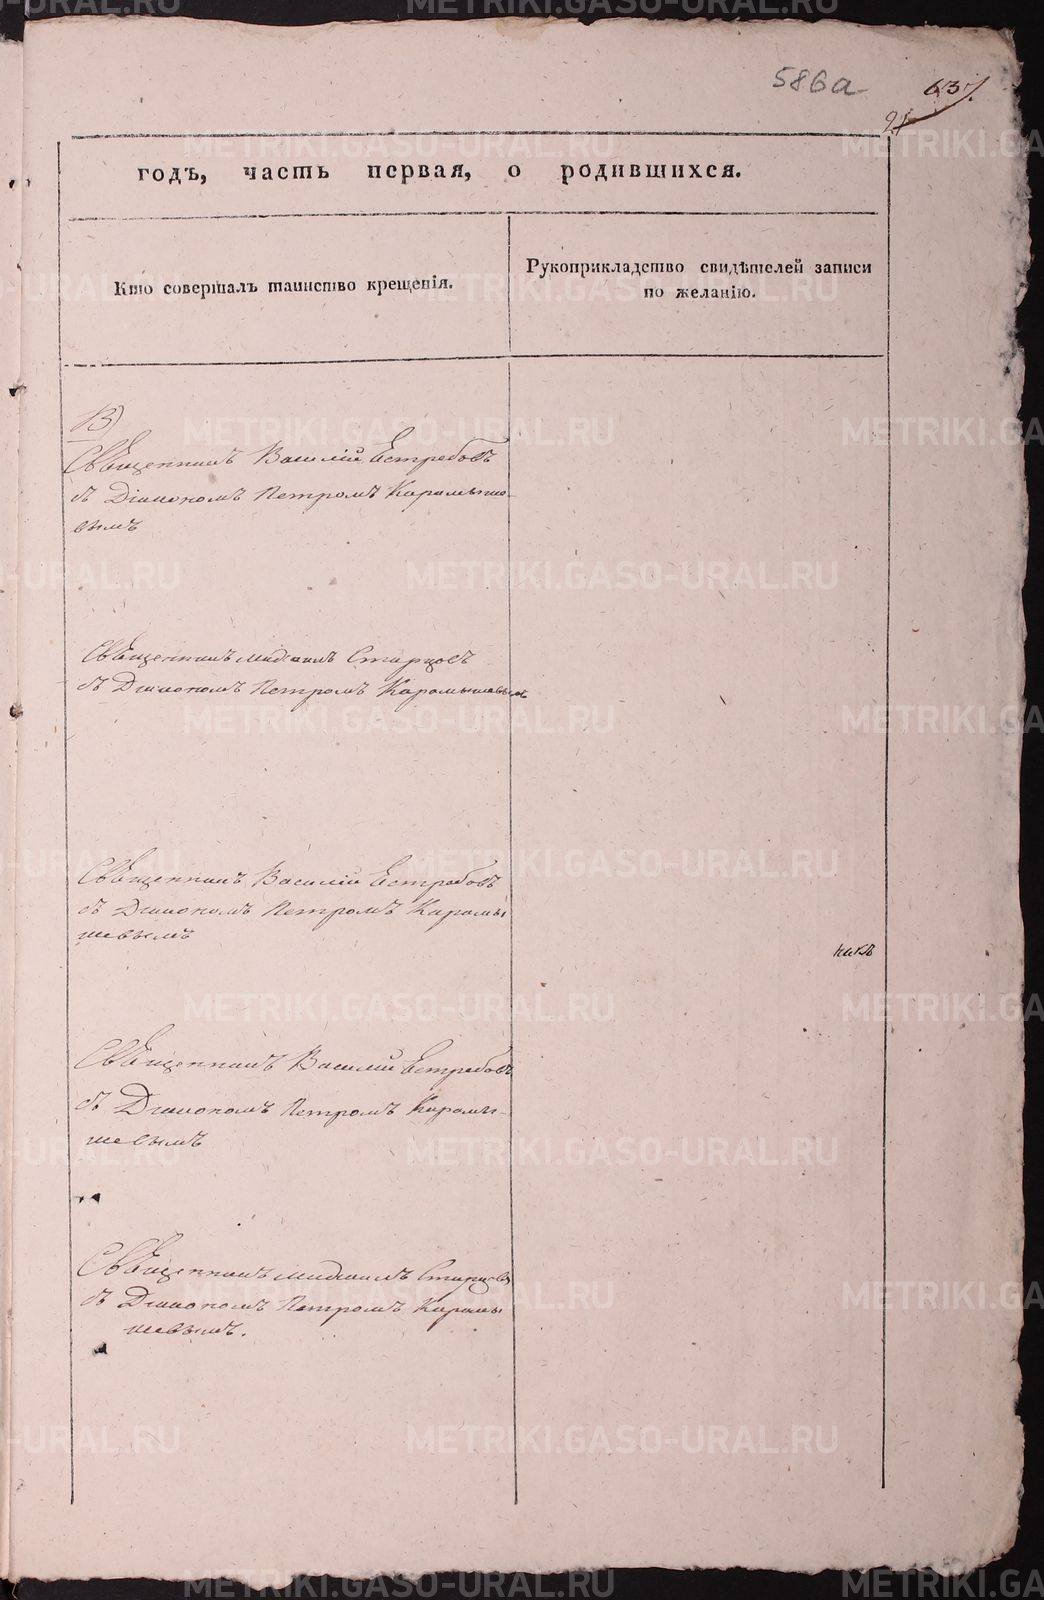 586а
637.
21
годъ, часть первая, о родившихся.
Кто совершалъ таинство крещенія.
Рукоприкладство свидѣтелей записи
по желанію.
13)
Священникъ Василій Естребовъ
съ Діакономъ Петромъ Карамыше-
вымъ
Священникъ Михаилъ Старцовъ
съ Діакономъ Петромъ Карамышевымъ
Священникъ Василій Естребовъ
съ Діакономъ Петромъ Карамы
шевымъ
Священникъ Василій Естребовъ
съ Діакономъ Петромъ Карамы-
шевымъ
Священникъ Михаилъ Старцовъ
съ Діакономъ Петромъ Карамы
шевымъ.
METRIKI.GASO-URAL.RU